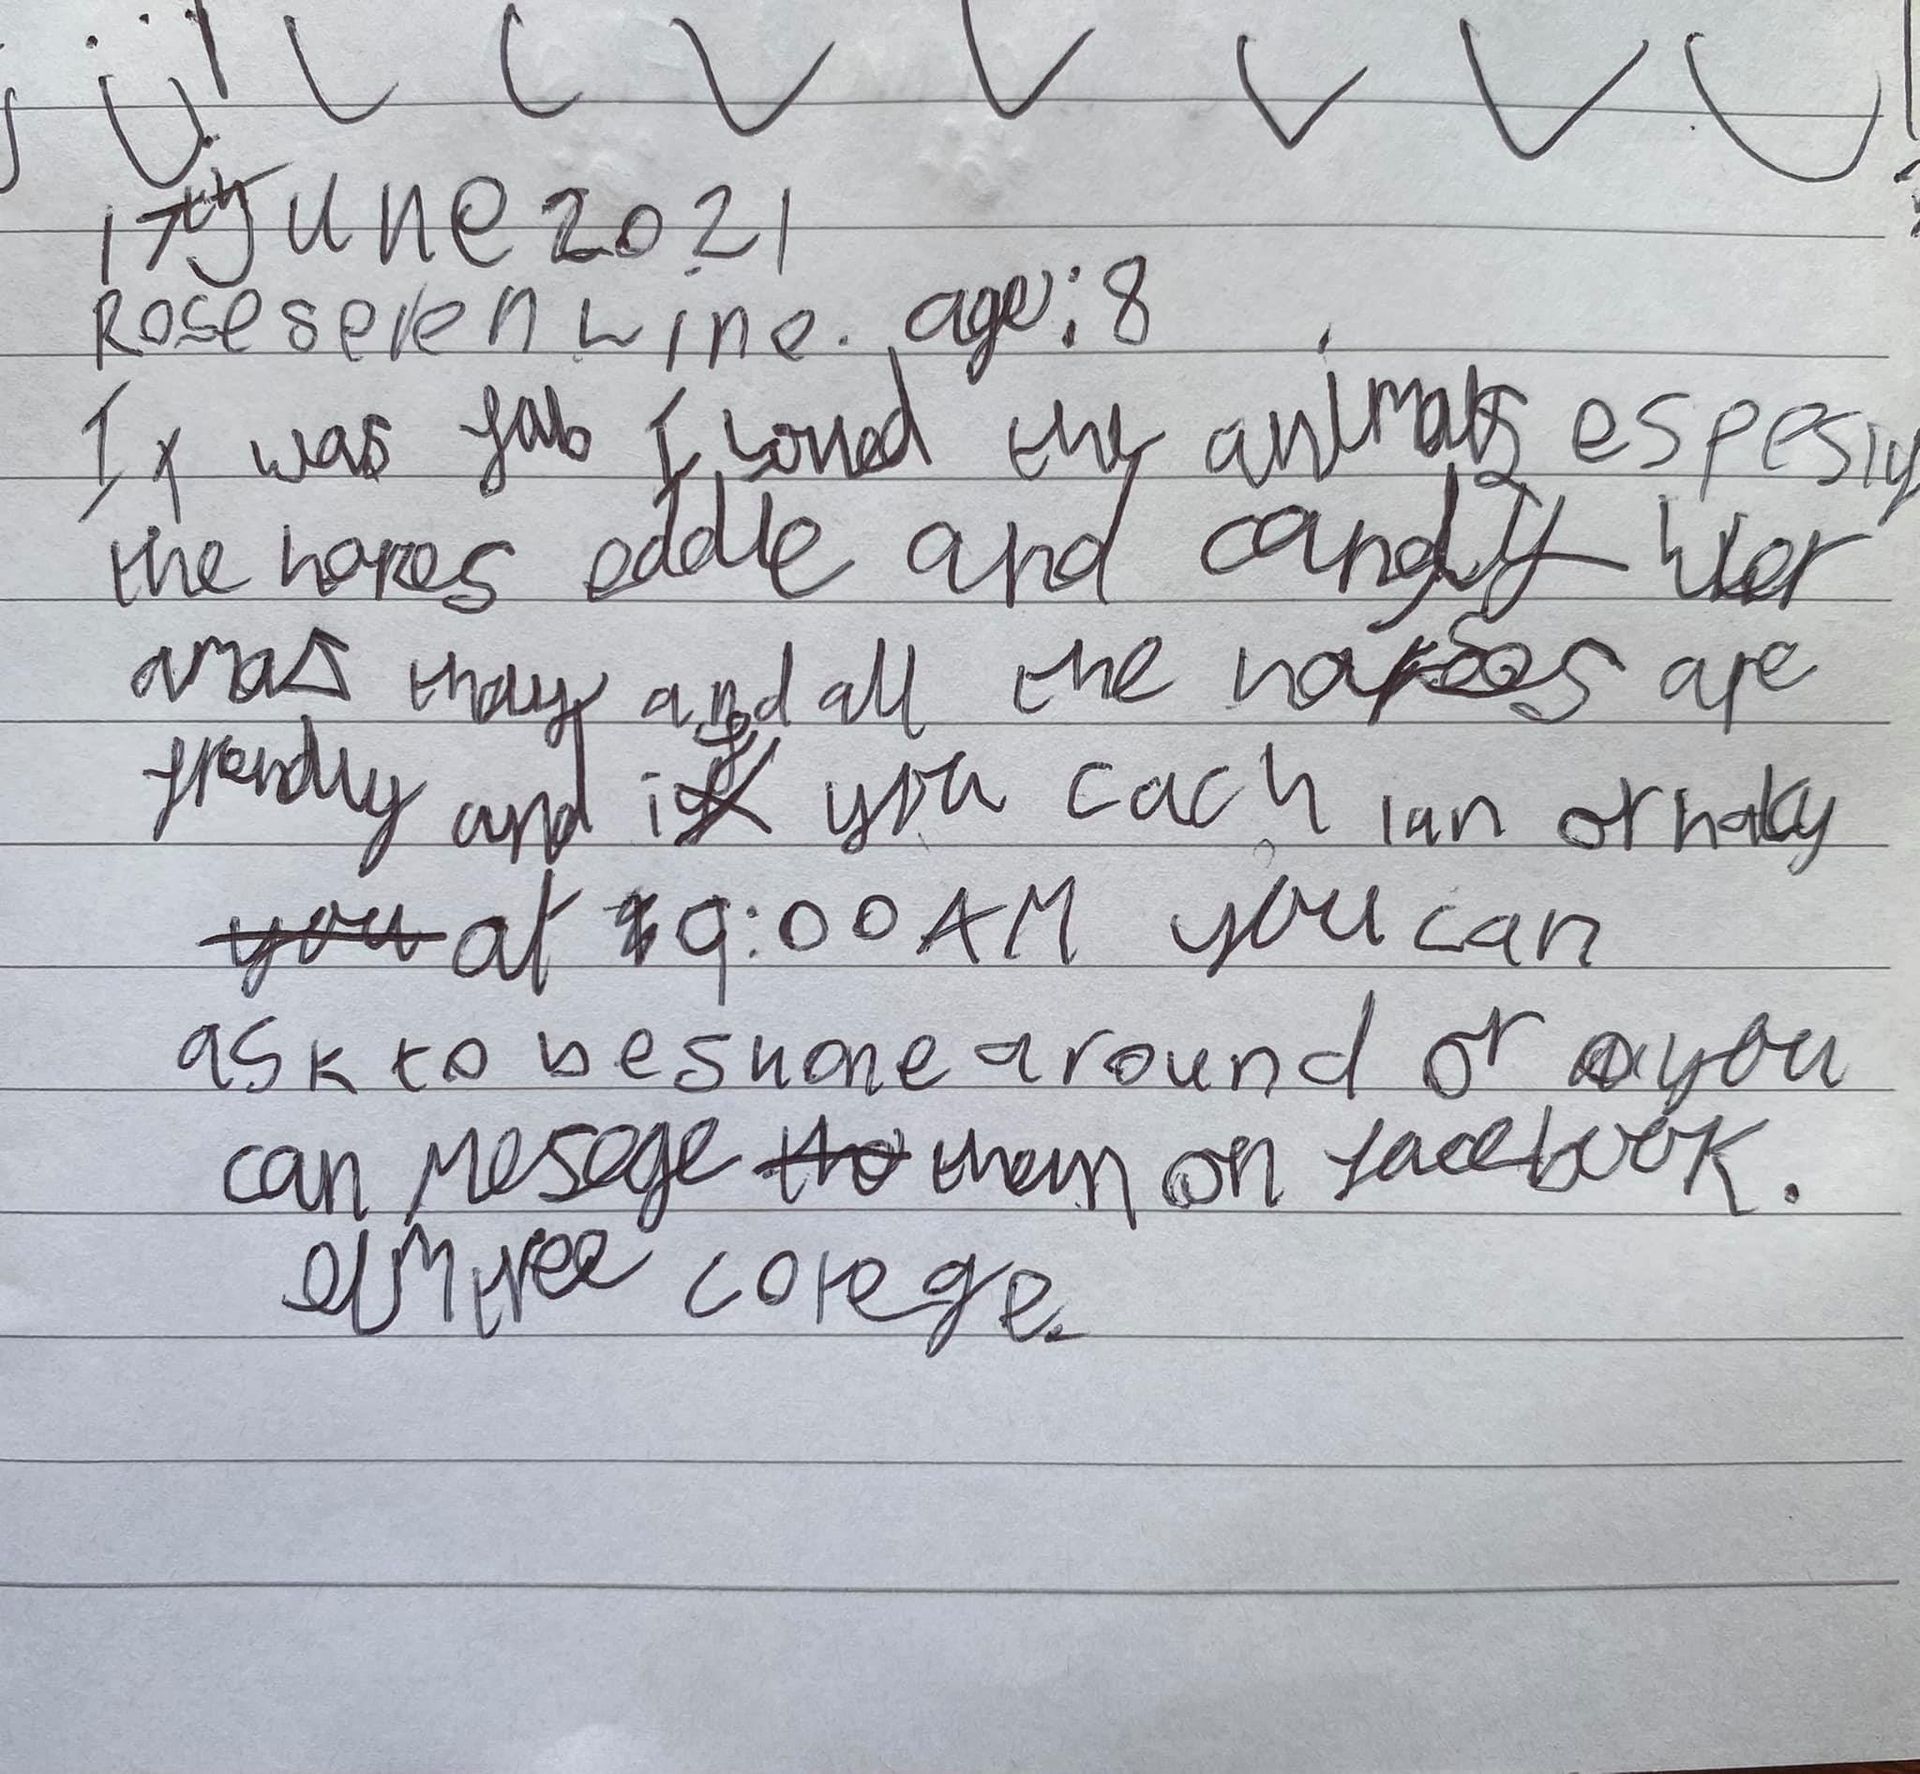 17th June 2021
Rose seven wine. age: 8
It was fab I loved the animals espesily
the hores eddie and candy
thay and all the horses are
frendly and if you cach ian or
you at 9:00AM you can
ask to be shone around or you
can mesege tho them on facebook.
elmtree corege.